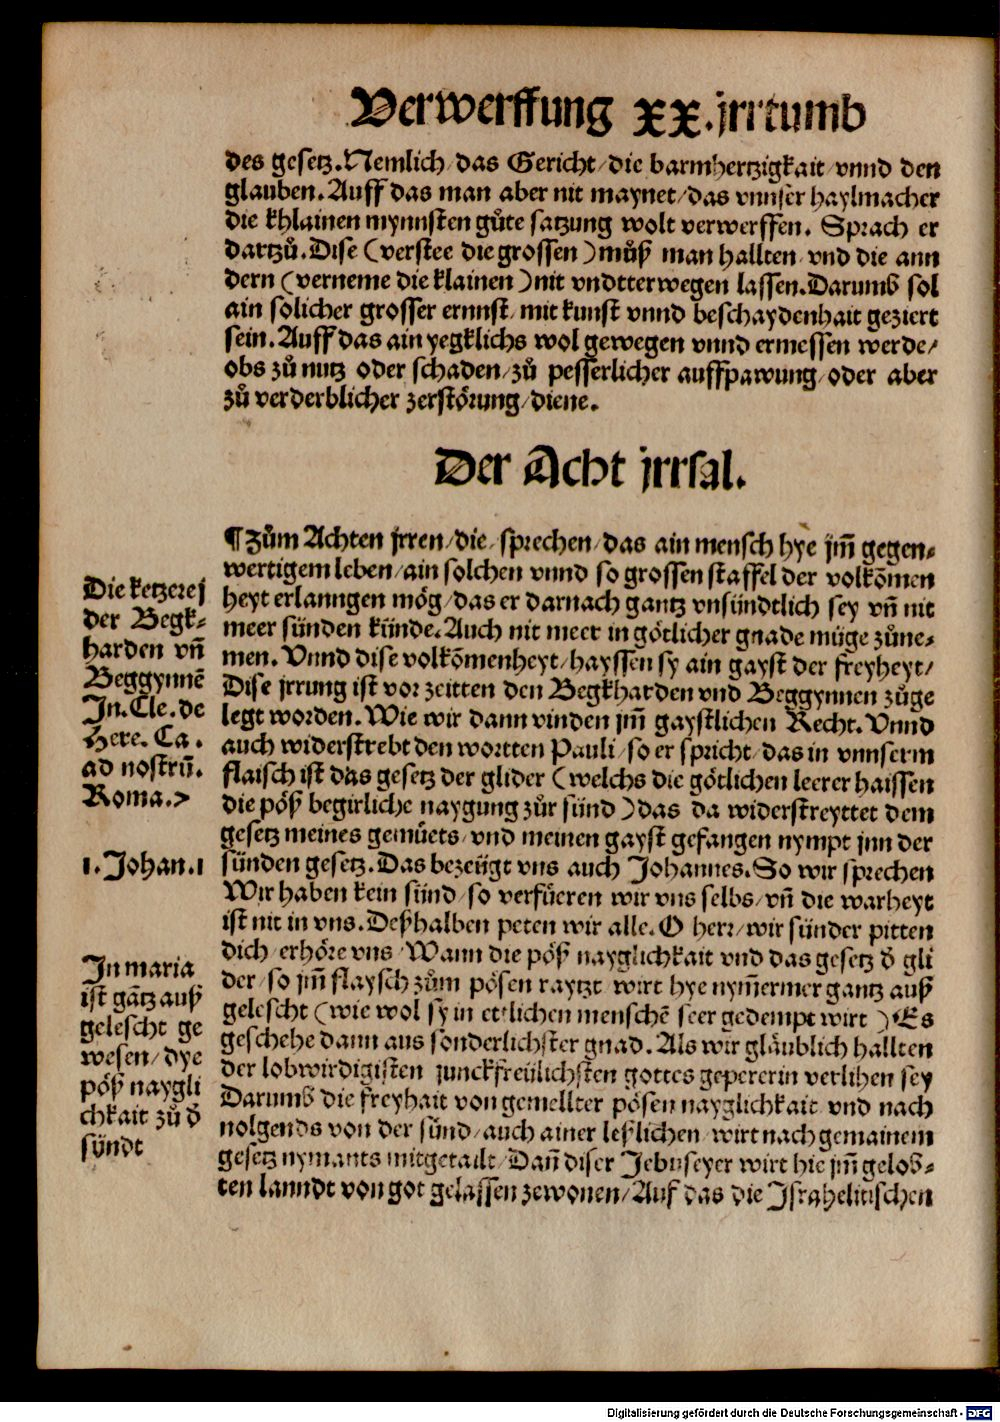 Verwerffung XX. jrrtumb
des gesetz. Nemlich/das Gericht/die barmhertzigkait/vnnd den
glauben. Auff das man aber nit maynet/das vnnser haylmacher
die khlainen mynnsten gůte satzung wolt verwerffen. Sprach er
dartzů. Dise (verstee die grossen) můß man hallten/vnd die ann
dern (verneme die klainen) nit vndtterwegen lassen. Darumb sol
ain solicher grosser ernnst/mit kunst vnnd beschaydenhait geziert
sein. Auff das ain yegklichs wol gewegen vnnd ermessen werde/
obs zů nutz oder schaden/zů pesserlicher auffpawung/oder aber
zů verderblicher zerstörung/diene.
Der Acht jrrsal.
¶ Zům Achten jrren/die/sprechen/das ain mensch hye jm̃ gegen-
wertigem leben/ain solchen vnnd so grossen staffel der volkõmen
heyt erlanngen mög/das er darnach gantz vnsündtlich sey vñ nit
meer sünden künde. Auch nit meer in götlicher gnade müge zůne-
men. Vnnd dise volkõmenheyt/hayssen sy ain gayst der freyheyt/
Dise jrrung ist vor zeitten den Begkharden vnd Beggynnen zůge
legt worden. Wie wir dann vinden jm̃ gaystlichen Recht. Vnnd
auch widerstrebt den wortten Pauli/so er spricht/das in vnnserm
flaisch ist das gesetz der glider (welchs die götlichen leerer haissen
die pöß begirliche naygung zůr sünd) das da widerstreyttet dem
gesetz meines gemůets/vnd meinen gayst gefangen nympt jnn der
sünden gesetz. Das bezeügt vns auch Johannes. So wir sprechen
Wir haben kein sünd/so verfüeren wir vns selbs/vñ die warheyt
ist nit in vns. Deßhalben peten wir alle. O herr/wir sünder pitten
dich/erhöre vns/Wann die pöß nayglichkait vnd das gesetz d̕ gli
der/so jm̃ flaysch zům pösen raytzt/wirt hye nym̃ermer gantz auß
gelescht (wie wol sy in etlichen menschẽ seer gedempt wirt) Es
geschehe dann aus sonderlichster gnad. Als wir gläublich hallten
der lobwirdigisten junckfreülichsten gottes gepererin verlihen sey
Darumb die freyhait von gemellter pösen nayglichkait/vnd nach
nolgends von der sünd/auch ainer leßlichen/wirt nach gemainem
gesetz nymants mitgetailt/Dañ diser Jebuseyer wirt hie jm̃ gelob-
ten lanndt von got gelassen zewonen/Auf das die Israhelitischen
Die ketzerej
der Begk-
harden vñ
Beggynnẽ
In. Cle. de
Here. Ca.
ad nostrũ.
Roma. 7
1. Johan. 1
In maria
ist gãtz auß
gelescht ge
wesen/dye
pöß naygli
chkait zů d̕
sündt
Digitalisierung gefördert durch die Deutsche Forschungsgemeinschaft - DFG